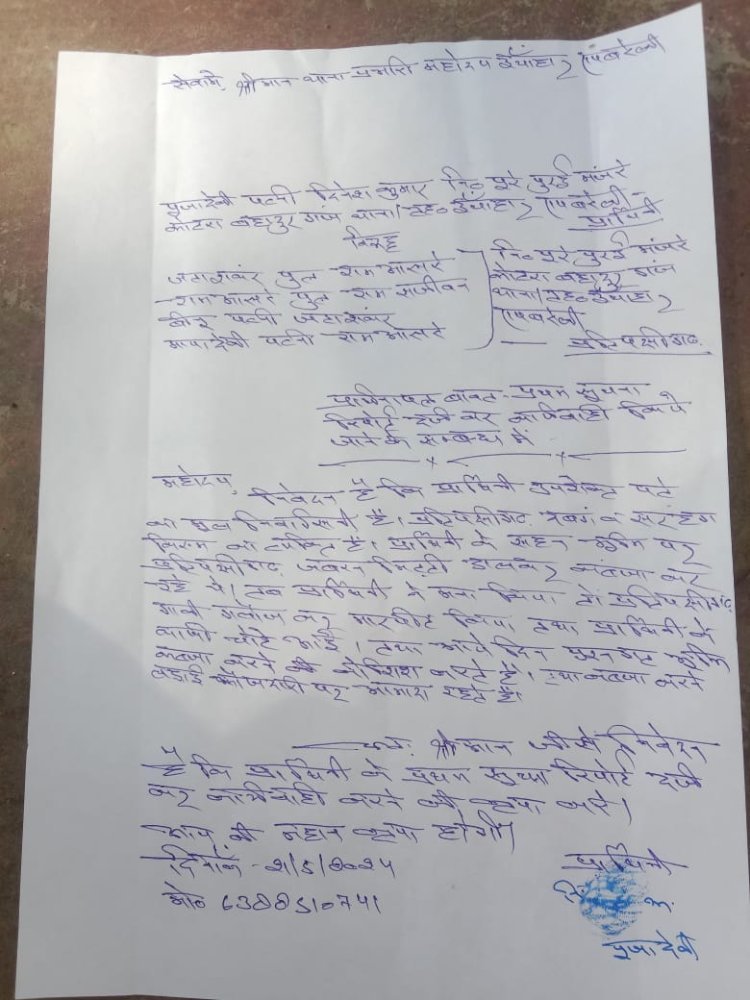 सेवामें, श्रीमान थाना प्रभारी महोदय ऊँचाहार रायबरेली
पूजादेवी पत्नी दिनेश कुमार नि० पूरे पुरई मजरे
कोटरा बहादुर गंज थाना/तह० ऊँचाहार रायबरेली -
प्रार्थिनी
विरुद्ध
जटाशंकर पुत्र राम आसरे
राम आसरे पुत्र राम सजीवन
पत्नी जटाशंकर
मायादेवी पत्नी राम आसरे
नि० पूरे पुरई मजरे
कोटरा बहादुर गंज
थाना/तह० ऊँचाहार
रायबरेली
प्रतिपक्षीगण
प्रार्थनापत्र बावत प्रथम सूचना
रिपोर्ट दर्ज कर कार्यवाही किये
जाने के सम्बन्ध में
महोदय,
निवेदन है कि प्रार्थिनी उपरोक्त पते
का मूल निवासिनी है। प्रतिपक्षीगण दबंग व सरहंग
किस्म का व्यक्ति है। प्रार्थिनी के सहन भूमि पर
प्रतिपक्षीगण जबरन मिट्टी डालकर कब्जा कर
रहे थे। जब प्रार्थिनी ने मना किया तो प्रतिपक्षीगण
गाली गलौज कर मारपीट किया तथा प्रार्थिनी के
काफी चोटे आई। तथा आये दिन भूमि
कब्जा करने की कोशिश करते है। तथा कब्जा करने
लड़ाई पर आमादा रहते है।
अतः श्रीमान जी से निवेदन
है कि प्रार्थिनी के प्रथम सूचना रिपोर्ट दर्ज
कर कार्यवाही करने की कृपा करे।
आप की महान कृपा होगी।
दिनांक - 2/5/2024
मो० 6388510741
प्रार्थिनी
पूजादेवी